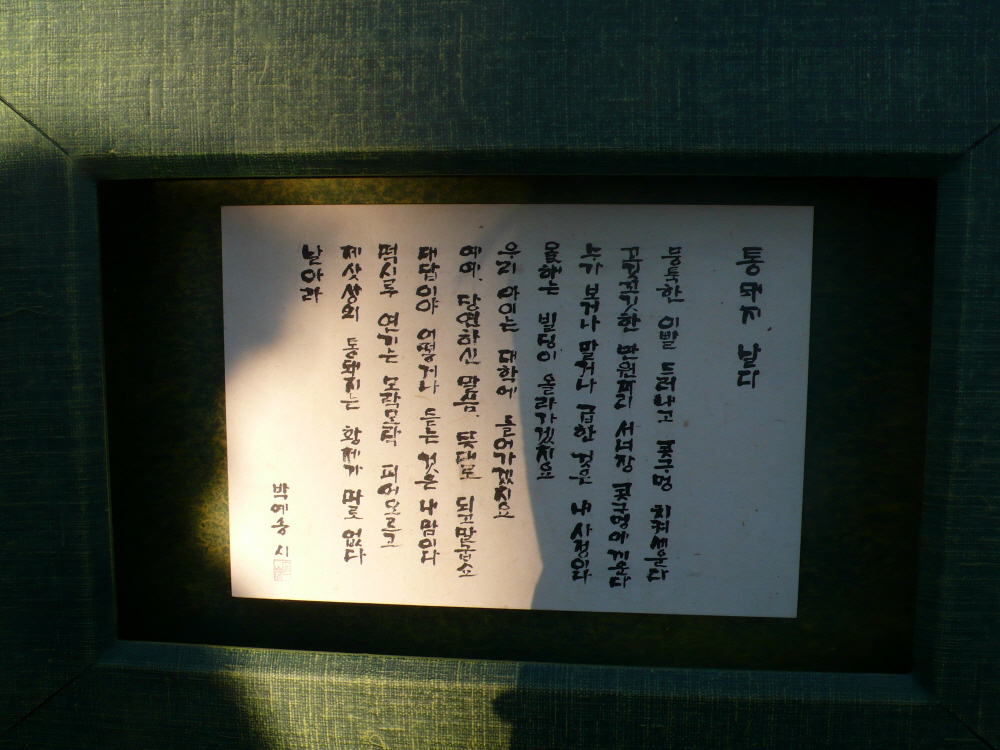 통돼지, 날다
뭉툭한 이빨 드러내고 콧구멍 치켜세운다
꼬깃꼬깃한 만원짜리 서너장 콧구멍에 끼운다
누가 보거나 말거나 급한 것은 내 사정이다
올해는 빌딩이 올라가겠지요
우리 아이는 대학에 들어가겠지요
예예, 당연하신 말씀, 뜻대로 되고말굽쇼
대답이야 어떻거나 듣는 것은 내 맘이다
떡시루 연기는 모락모락 피어오르고
제삿상의 통돼지는 황제가 따로 없다
날아라
박예송 시